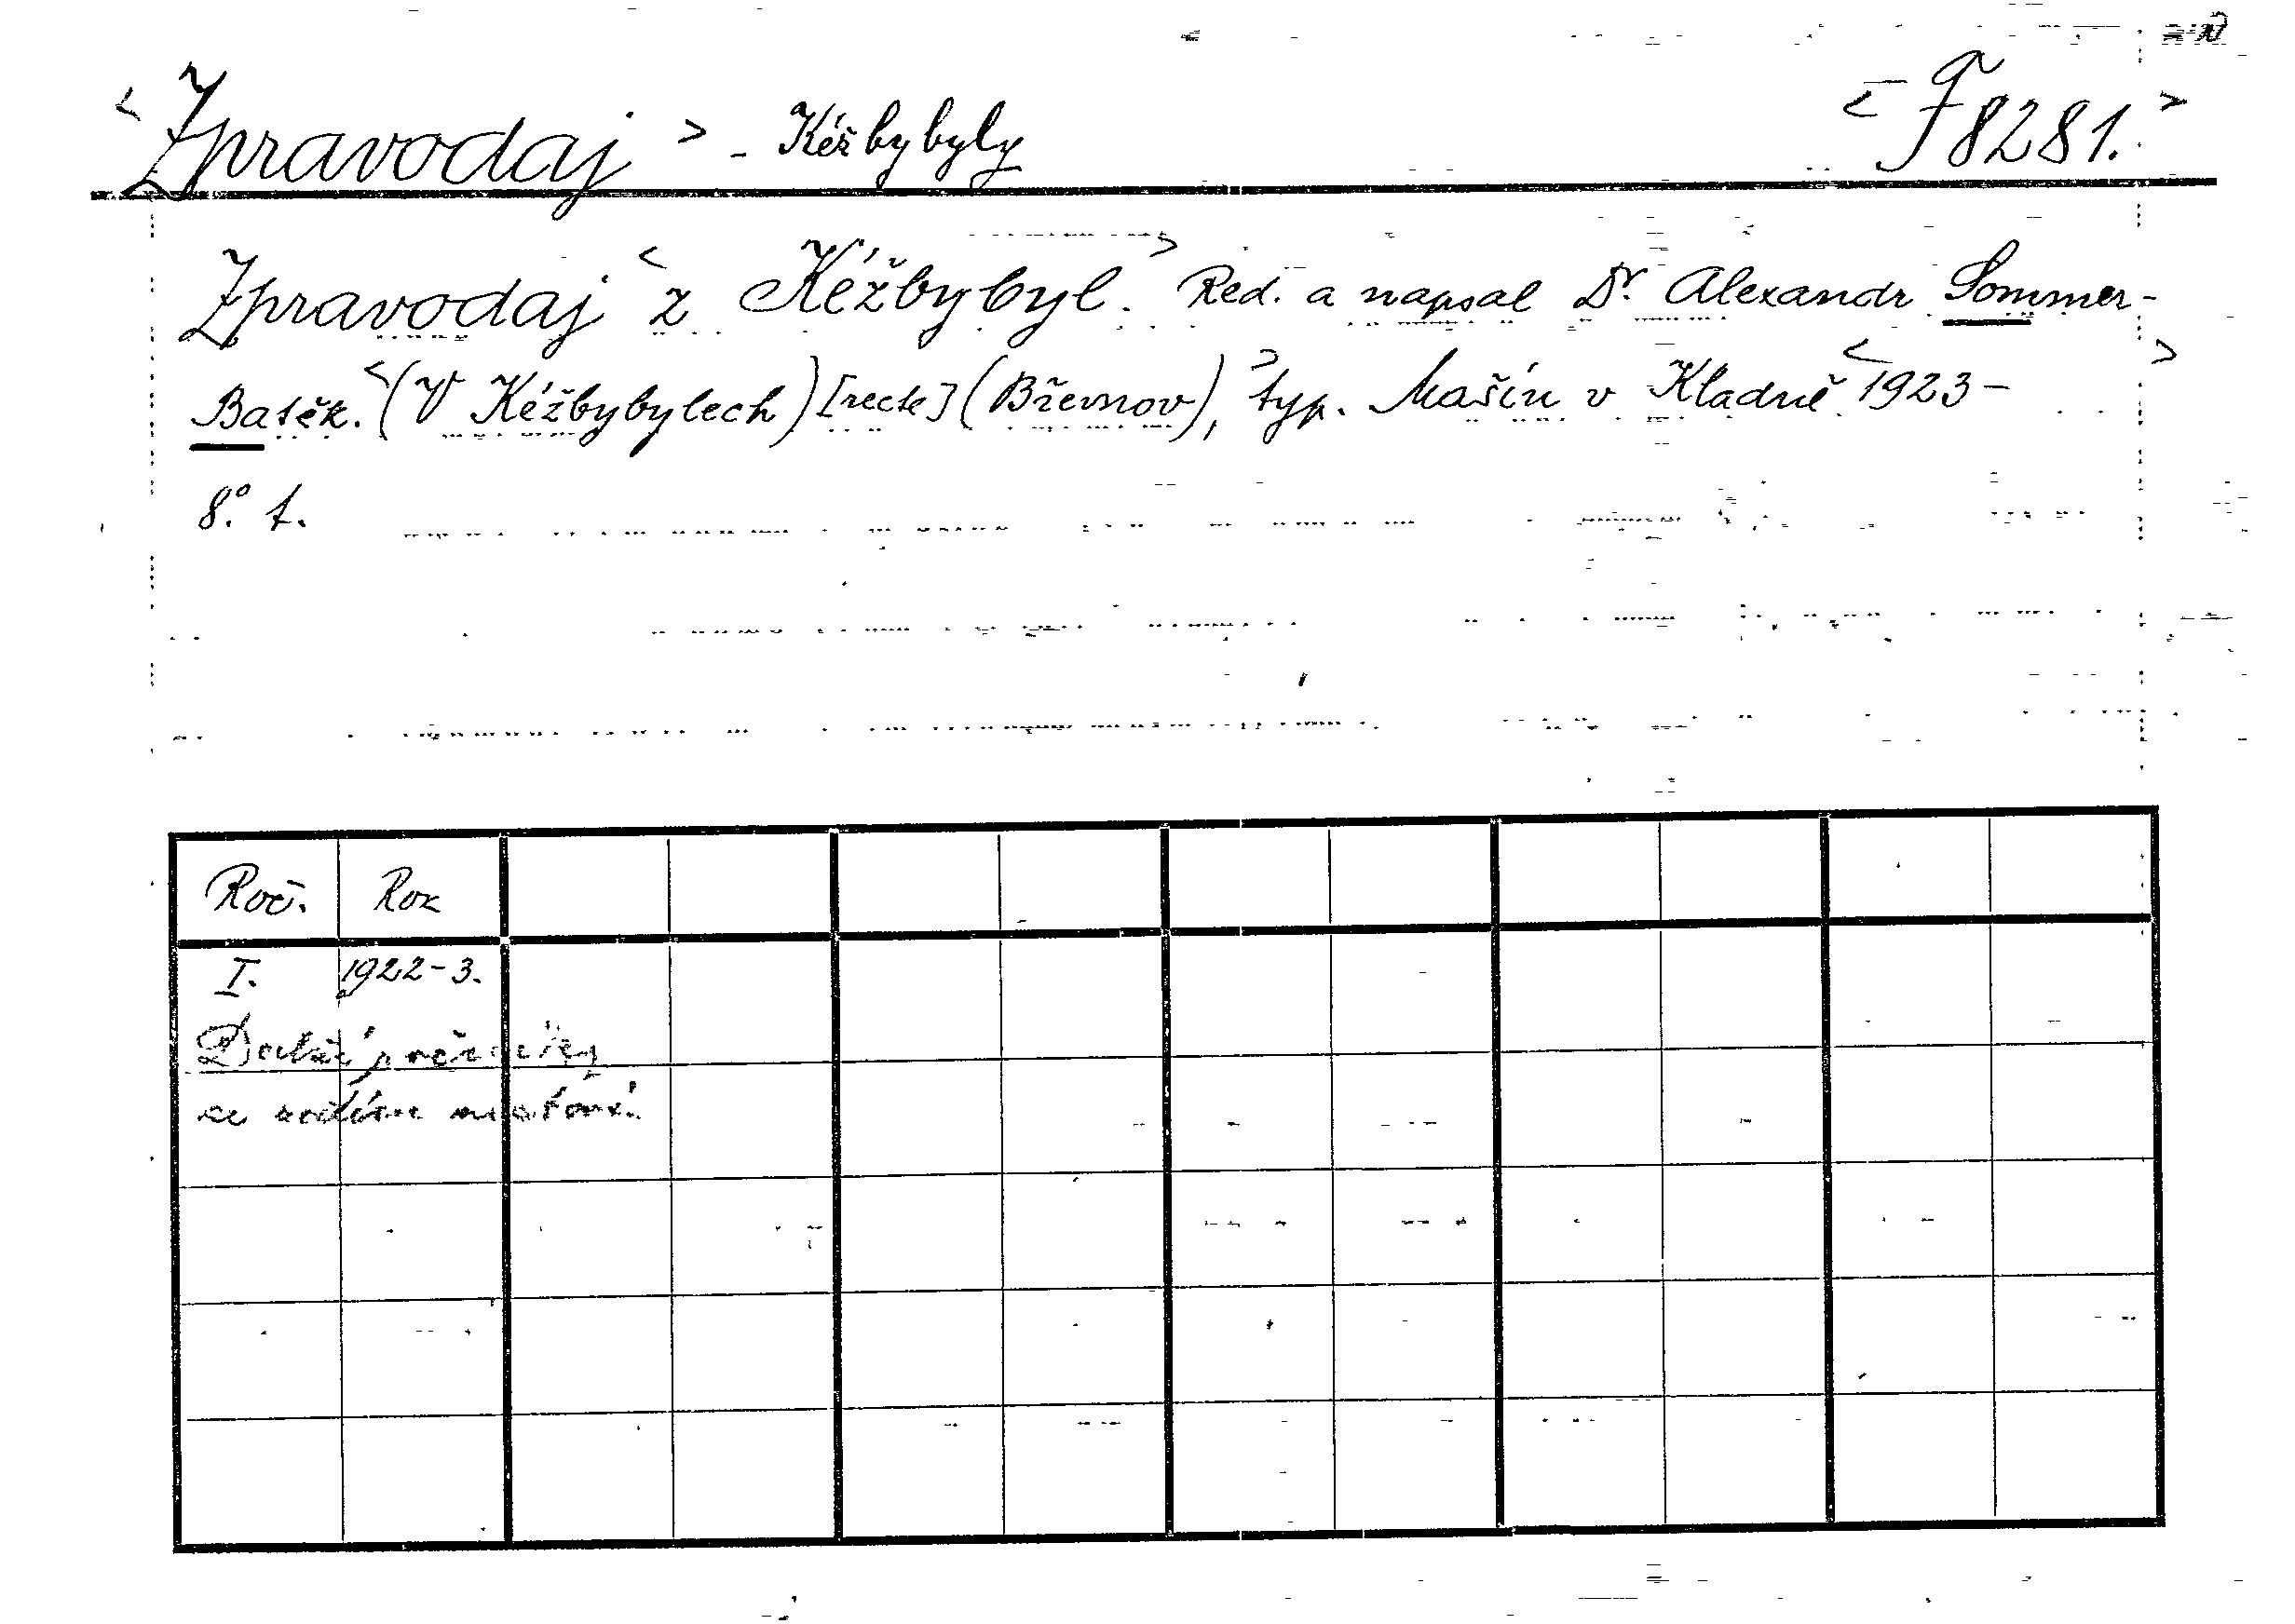 < Zpravodaj > - Kéžbybyly < F 8281. >
Zpravodaj < z Kéžbybyl. > Red. a napsal Dr. Alexandr Sommer-
Batěk. < (V Kéžbybylech) [recte] (Břevnov), > typ. Mašín v Kladně < 1923 - >
8.° t.
Roč. Rok
I. 1922-3.
Další ročníky